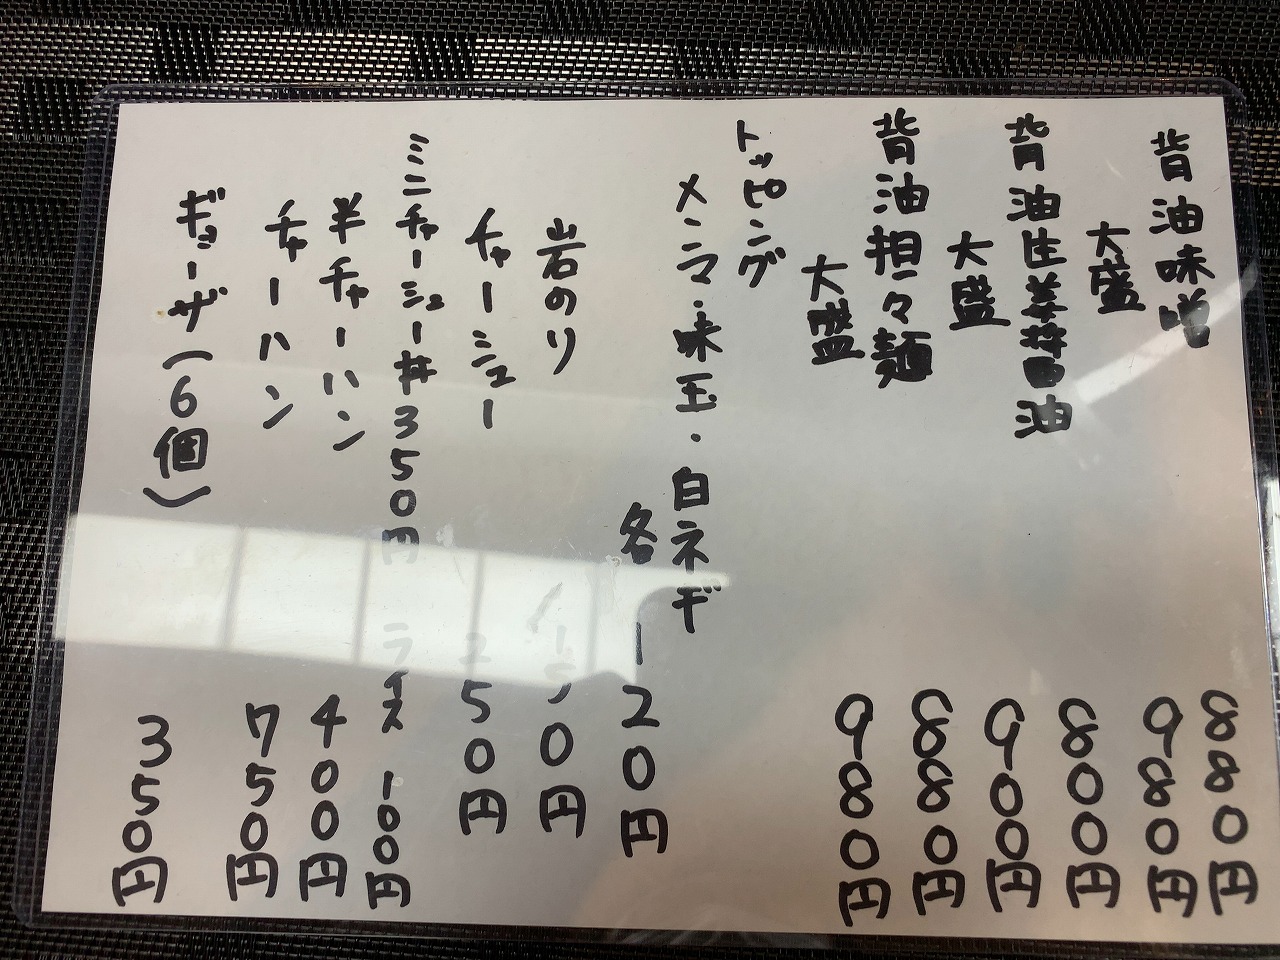 背油味噌 880円
大盛 980円
背油生姜醤油 800円
大盛 900円
背油担々麺 880円
大盛 980円
トッピング
メンマ・味玉・白ネギ
各120円
岩のり 150円
チャーシュー 250円
ミニチャーシュー丼350円 ライス 100円
半チャーハン 400円
チャーハン 750円
ギョーザ(6個) 350円